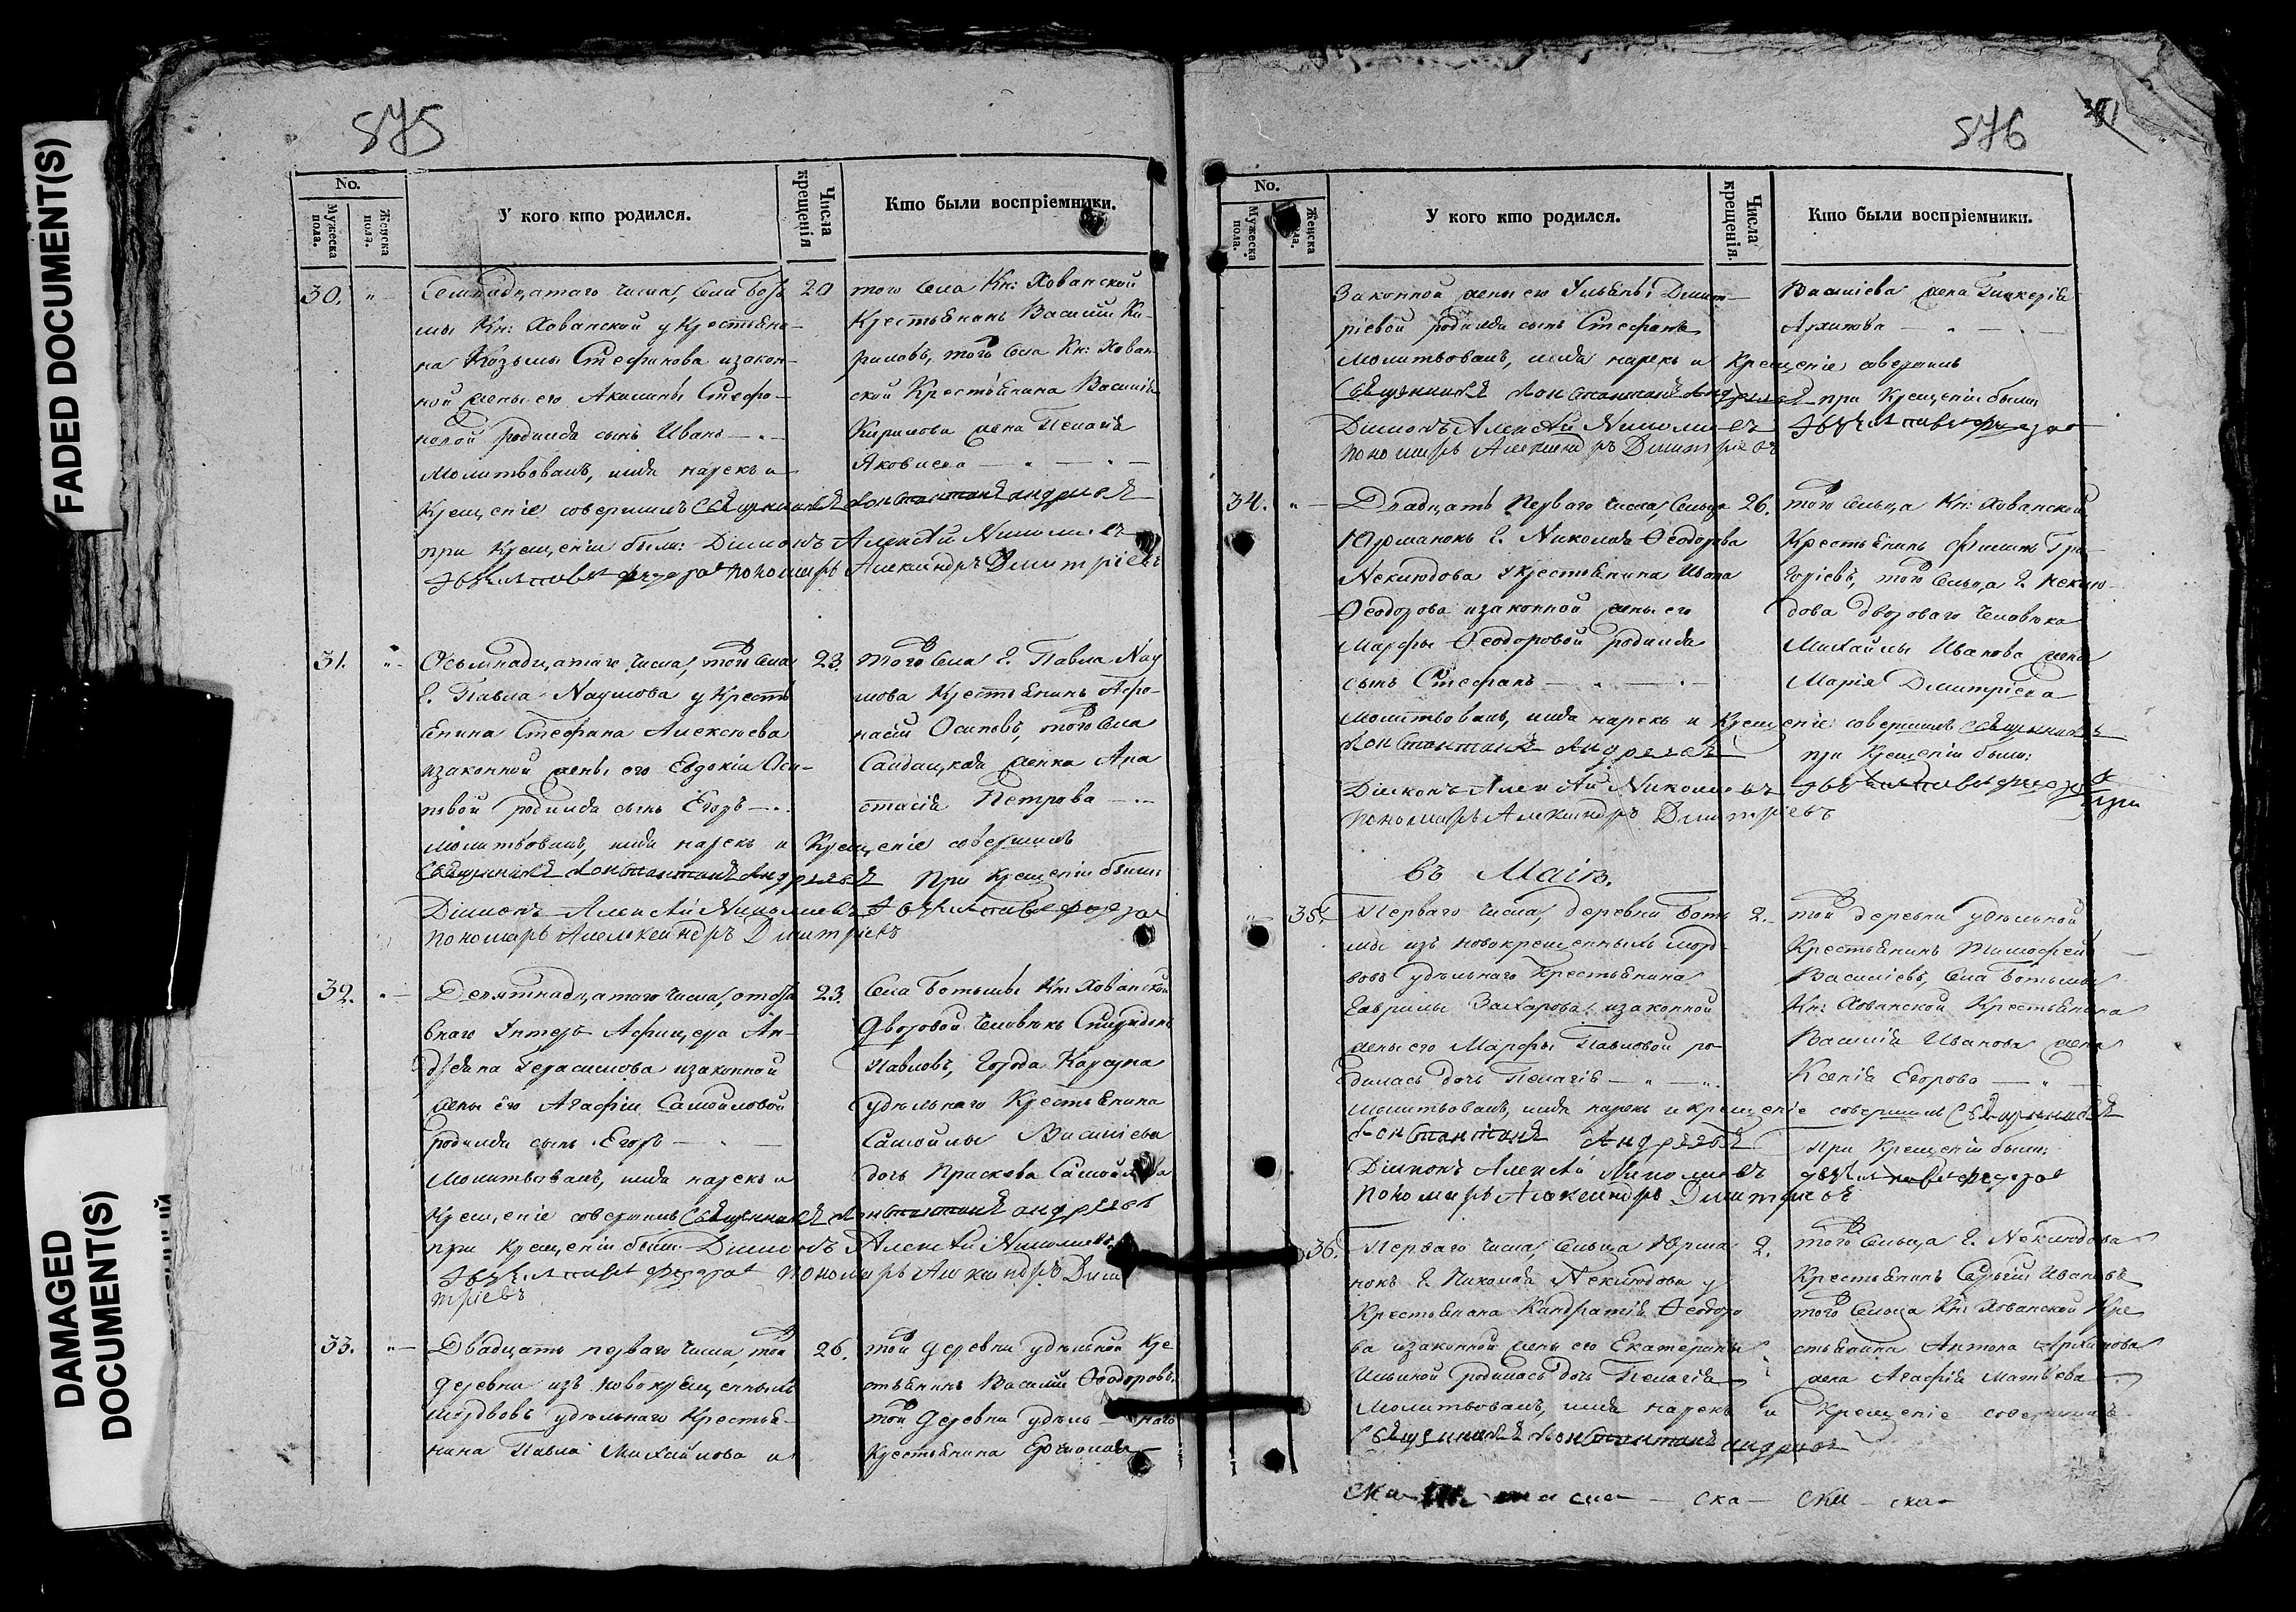 FADED DOCUMENT(S)
DAMAGED
DOCUMENT(S)
875
No.
Мужеска пола.
Женска пола.
У кого кто родился.
Числа крещенія
Кто были воспріемники.
30. Семнадцатаго числа, села Бот
мы Кн: Хованской у Крестьяни-
на Козьмы Стефанова и закон-
ной жены его Акилины Стефа-
новой родился сынъ Иванъ
Молитвовалъ, имя нарекъ и
Крещеніе совершилъ Священникъ Константинъ Андреевъ
при Крещеніи были: Діаконъ Алексѣй Николаевъ
Пономарь Александръ Димитріевъ
20
того села Кн: Хованской
Крестьянинъ Василій Ки-
риловъ, того села Кн: Хован-
ской Крестьянина Василія
Кирилова жена Пелагія
Яковлева
31. Осьмнадцатаго числа, того села
Г. Павла Наумова у Кресть
янина Стефана Алексѣева
и законной жены его Евдокіи Оси-
повой родился сынъ Егоръ
Молитвовалъ, имя нарекъ и Крещеніе совершилъ
Священникъ Константинъ Андреевъ При Крещеніи были:
Діаконъ Алексѣй Николаевъ
Пономарь Александръ Димитріевъ
23.
того села Г. Павла Нау
мова Крестьянинъ Афа-
насій Осиповъ, того села
Салдацкая женка Ана
стасія Петрова
32. Девятнадцатаго числа, отста
внаго Унтеръ Афицера Ан-
дреяна Герасимова и законной
жены его Агафіи Самойловой
родился сынъ Егоръ
Молитвовалъ, имя нарекъ и
Крещеніе совершилъ Священникъ Константинъ Андреевъ
при Крещеніи были Діаконъ Алексѣй Николаевъ
Пономарь Александръ Дими
тріевъ
23.
Села Ботьмы Кн: Хованской
Дворовой человѣкъ Спиридонъ
Павловъ, города Карсуна
удѣльнаго Крестьянина
Самойлы Васильева
дочь Прасковья Самойлова
33. Двадцать перваго числа, той
деревни изъ новокрещенныхъ
мордвовъ удѣльнаго Крестья-
нина Павла Михайлова и
26.
той деревни удѣльной Кре
стьянинъ Василій Ѳеодоровъ,
той деревни удѣль наго
Крестьянина
876
No.
Мужеска пола.
Женска
У кого кто родился.
Числа крещенія.
Кто были воспріемники.
Законной жены его Ульяны Димит-
ріевой родился сынъ Стефанъ
Молитвовалъ, имя нарекъ и Крещеніе совершилъ
Священникъ Константинъ Андреевъ при Крещеніи были
Діаконъ Алексѣй Николаевъ
Пономарь Александръ Димитріевъ
Васильева жена Гликерія
Архипова
34. Двадцать Перваго числа, Сельца
Юрманокъ Г. Николая Ѳеодорова
Неклюдова у крестьянина Ивана
Ѳеодорова и законной жены его
Марфы Ѳеодоровой родился
сынъ Стефанъ
Молитвовалъ, имя нарекъ и Крещеніе совершилъ Священникъ
Константинъ Андреевъ при Крещеніи были:
Діаконъ Алексѣй Николаевъ
Пономарь Александръ Димитріевъ
26.
того Сельца Кн: Хованской
Крестьянинъ Филипъ Гри-
горіевъ, того Сельца Г. Неклю-
дова двороваго человѣка
Михайлы Иванова жена
Марія Димитріева
Въ Маіѣ.
35. Перваго числа, деревни Боть
мы изъ новокрещенныхъ морд-
вовъ удѣльнаго Крестьянина
Гаврилы Захарова и законной
жены его Марфы Павловой ро-
дилась дочь Пелагія
Молитвовалъ, имя нарекъ и крещеніе совершилъ Священникъ
Константинъ Андреевъ при Крещеніи были:
Діаконъ Алексѣй Николаевъ
Пономарь Александръ Димитріевъ
2.
той деревни удѣльной
Крестьянинъ Тимофей
Васильевъ, Села Ботьмы
Кн: Хованской Крестьянина
Василія Иванова жена
Ксенія Егорова
36. Перваго числа, Сельца Юрма
нокъ Г. Николая Неклюдова у
Крестьянина Кандратія Ѳеодоро
ва и законной жены его Екатерины
Ильиной родилась дочь Пелагія
Молитвовалъ, имя нарекъ и Крещеніе совершилъ
Священникъ Константинъ Андреевъ
2.
того Сельца Г. Неклюдова
Крестьянинъ Сергѣй Ивановъ
того Сельца Кн: Хованской Кре
стьянина Антона Архипова
жена Агафія Матвѣева
ска ска ска